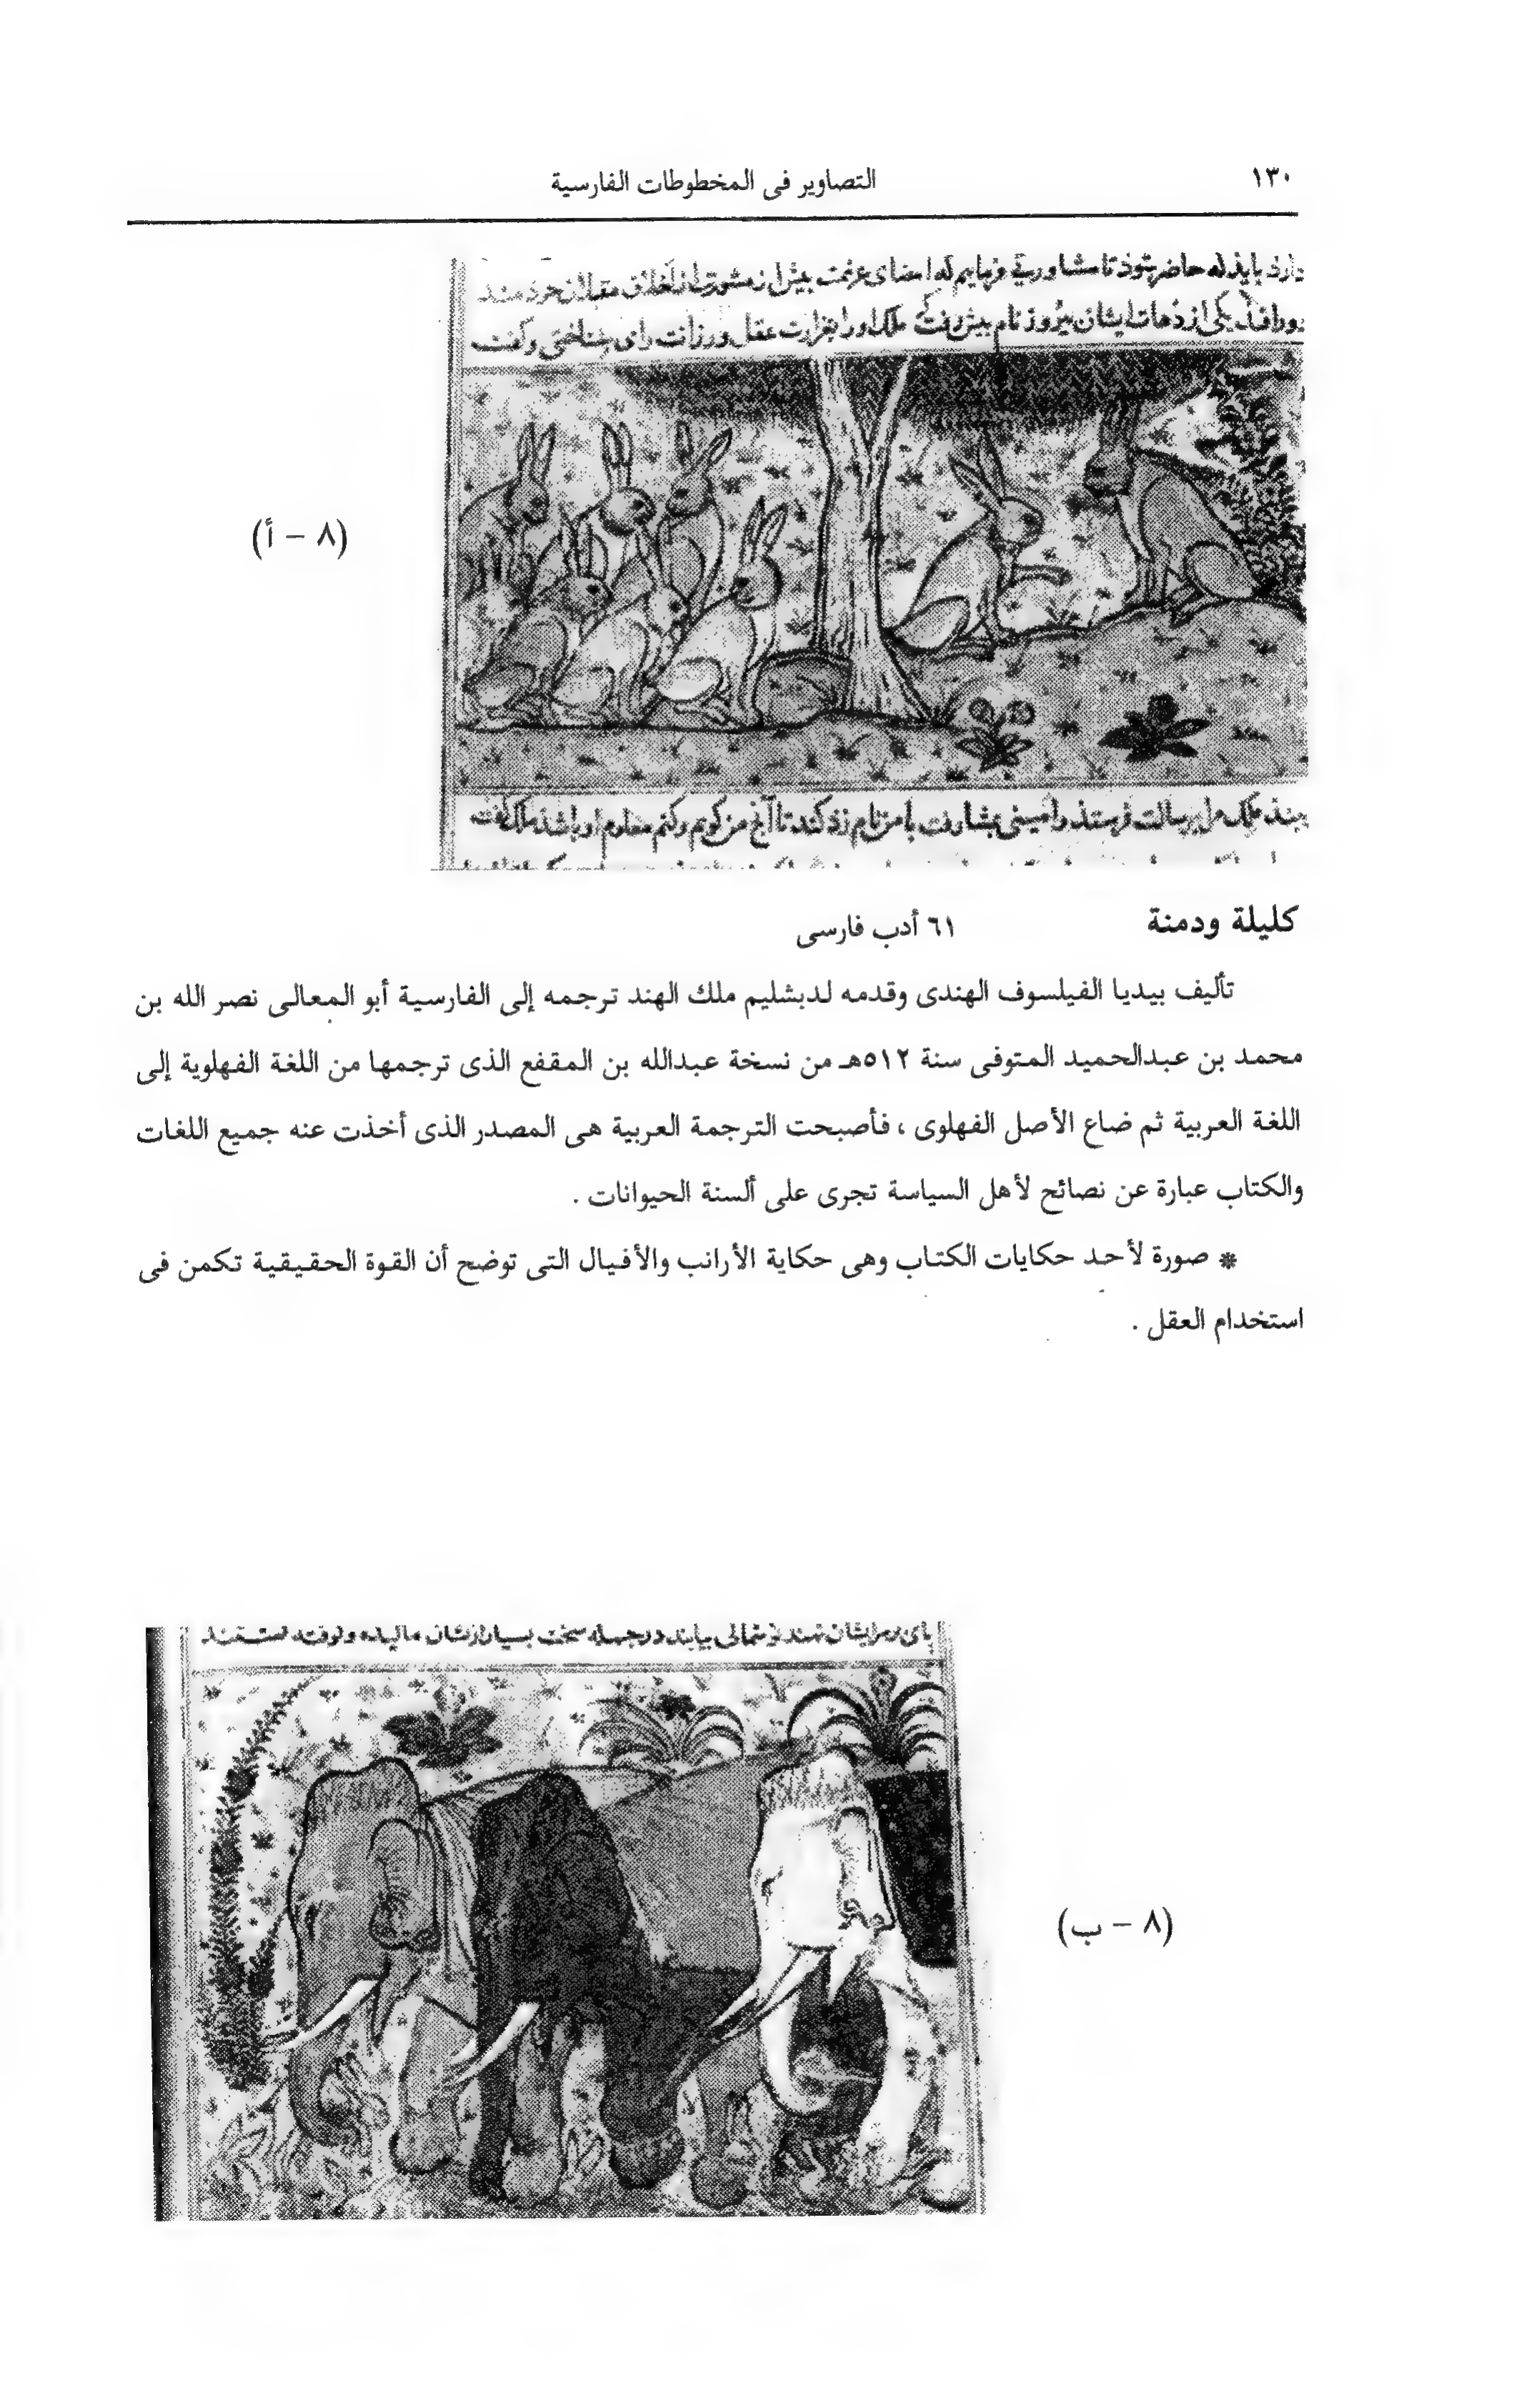 ١٣٠
التصاوير فى المخطوطات الفارسية
يكى از دهات ايشان پيروز نام پيش رفت كى ملك او را بغزارت عقل ورزانت راى شناختى وكفت
(٨ – أ)
كليلة ودمنة
٦١ أدب فارسى
تأليف بيديا الفيلسوف الهندى وقدمه لدبشليم ملك الهند ترجمه إلى الفارسية أبو المعالى نصر الله بن
محمد بن عبدالحميد المتوفى سنة ٥١٢هـ من نسخة عبدالله بن المقفع الذى ترجمها من اللغة الفهلوية إلى
اللغة العربية ثم ضاع الأصل الفهلوى ، فأصبحت الترجمة العربية هى المصدر الذى أخذت عنه جميع اللغات
والكتاب عبارة عن نصائح لأهل السياسة تجرى على ألسنة الحيوانات .
* صورة لأحد حكايات الكتاب وهى حكاية الأرانب والأفيال التى توضح أن القوة الحقيقية تكمن فى
استخدام العقل .
(٨ – ب)